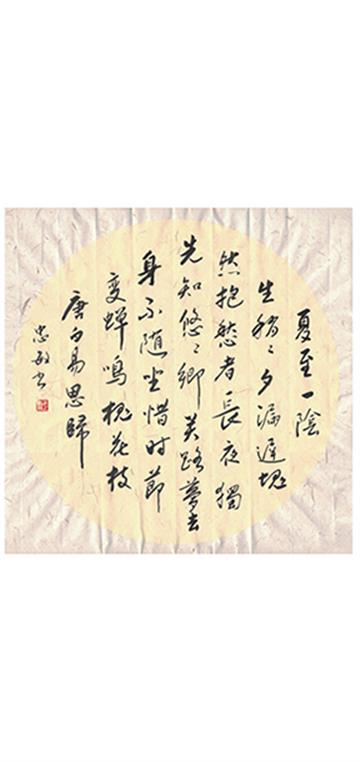 夏至一陰
生稍〻夕漏遲塊
然抱愁者長夜獨
先知悠〻鄉关路夢去
身不随坐惜时節
变蝉鳴槐花枝
唐白易思歸
忠敏书